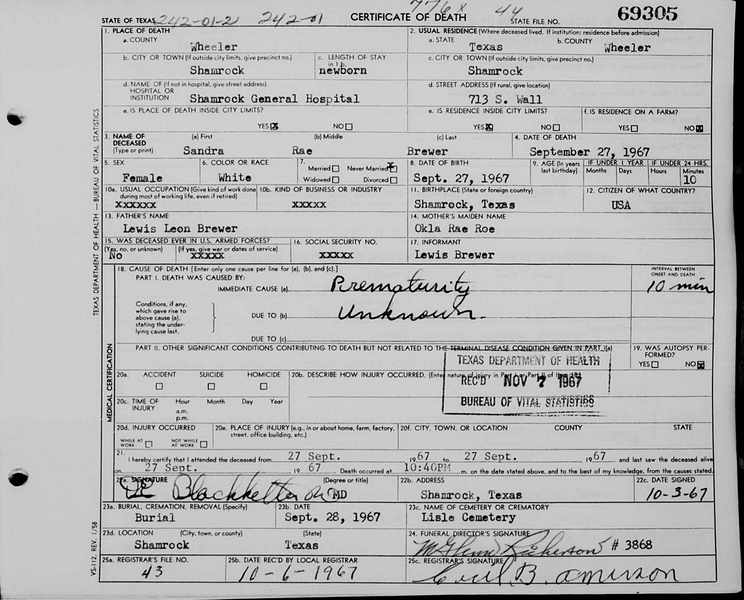 776x 44
STATE OF TEXAS 242-01-2 242-01 CERTIFICATE OF DEATH STATE FILE NO. 69305
1. PLACE OF DEATH 2. USUAL RESIDENCE (Where deceased lived. If institution: residence before admission)
a. COUNTY a. STATE b. COUNTY
Wheeler Texas Wheeler
b. CITY OR TOWN (If outside city limits, give precinct no.) c. LENGTH OF STAY in 1 b. c. CITY OR TOWN (If outside city limits, give precinct no.)
Shamrock newborn Shamrock
d. NAME OF (If not in hospital, give street address) d. STREET ADDRESS (If rural, give location)
HOSPITAL OR INSTITUTION Shamrock General Hospital 713 S. Wall
e. IS PLACE OF DEATH INSIDE CITY LIMITS? e. IS RESIDENCE INSIDE CITY LIMITS? f. IS RESIDENCE ON A FARM?
YES NO YES NO YES NO
3. NAME OF DECEASED (Type or print) (a) First (b) Middle (c) Last 4. DATE OF DEATH
Sandra Rae Brewer September 27, 1967
5. SEX 6. COLOR OR RACE 7. Married Never Married 8. DATE OF BIRTH 9. AGE (In years last birthday) IF UNDER 1 YEAR IF UNDER 24 HRS.
Widowed Divorced Months Days Hours Minutes
Female White Sept. 27, 1967 10
10a. USUAL OCCUPATION (Give kind of work done during most of working life, even if retired) 10b. KIND OF BUSINESS OR INDUSTRY 11. BIRTHPLACE (State or foreign country) 12. CITIZEN OF WHAT COUNTRY?
xxxxxx xxxxx Shamrock, Texas USA
13. FATHER'S NAME 14. MOTHER'S MAIDEN NAME
Lewis Leon Brewer Okla Rae Roe
15. WAS DECEASED EVER IN U.S. ARMED FORCES? 16. SOCIAL SECURITY NO. 17. INFORMANT
(Yes, no, or unknown) (If yes, give war or dates of service)
No xxxxx xxxxx Lewis Brewer
18. CAUSE OF DEATH [Enter only one cause per line for (a), (b), and (c).] INTERVAL BETWEEN ONSET AND DEATH
PART I. DEATH WAS CAUSED BY:
IMMEDIATE CAUSE (a) Prematurity 10 min
Conditions, if any, which gave rise to above cause (a), stating the underlying cause last.
DUE TO (b) Unknown.
DUE TO (c)
PART II. OTHER SIGNIFICANT CONDITIONS CONTRIBUTING TO DEATH BUT NOT RELATED TO THE TERMINAL DISEASE CONDITION GIVEN IN PART I(a) 19. WAS AUTOPSY PERFORMED?
YES NO
TEXAS DEPARTMENT OF HEALTH
REC'D NOV 7 1967
BUREAU OF VITAL STATISTICS
20a. ACCIDENT SUICIDE HOMICIDE 20b. DESCRIBE HOW INJURY OCCURRED. (Enter nature of injury in Part I or Part II of item 18.)
20c. TIME OF INJURY Hour Month Day Year
a.m.
p.m.
20d. INJURY OCCURRED 20e. PLACE OF INJURY (e.g., in or about home, farm, factory, street, office building, etc.) 20f. CITY, TOWN, OR LOCATION COUNTY STATE
WHILE AT WORK NOT WHILE AT WORK
21. I hereby certify that I attended the deceased from 27 Sept. 1967 to 27 Sept. 1967 and last saw the deceased alive
on 27 Sept. 1967 Death occurred at 10:40PM m. on the date stated above, and to the best of my knowledge, from the causes stated.
22a. SIGNATURE (Degree or title) 22b. ADDRESS 22c. DATE SIGNED
MD Shamrock, Texas 10-3-67
23a. BURIAL, CREMATION, REMOVAL (Specify) 23b. DATE 23c. NAME OF CEMETERY OR CREMATORY
Burial Sept. 28, 1967 Lisle Cemetery
23d. LOCATION (City, town, or county) (State) 24. FUNERAL DIRECTOR'S SIGNATURE
Shamrock Texas # 3868
25a. REGISTRAR'S FILE NO. 25b. DATE REC'D BY LOCAL REGISTRAR 25c. REGISTRAR'S SIGNATURE
43 10-6-1967 Cecil B.
TEXAS DEPARTMENT OF HEALTH—BUREAU OF VITAL STATISTICS
MEDICAL CERTIFICATION
VS-112, REV. 1/58